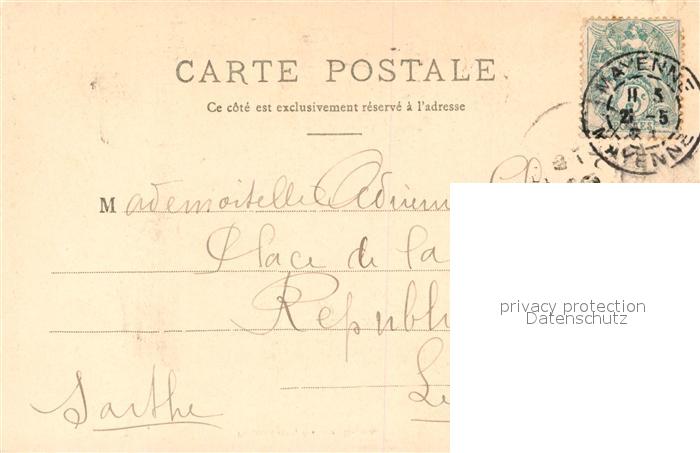 CARTE POSTALE
Ce côté est exclusivement réservé à l'adresse
MAYENNE
11 5
21 -5
MAYENNE
Mademoiselle
Place de la
Republi
Le
Sarthe
privacy protection
Datenschutz